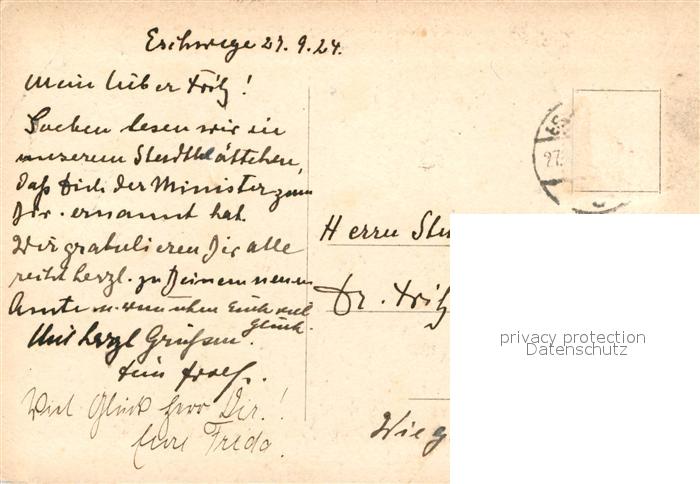 Eschwege 27.9.24.
Mein lieber Fritz!
Soeben lesen wir in
unserem Stadtblättchen,
daß Dich der Minister zum
Dir. ernannt hat.
Wir gratulieren Dir alle
recht herzl. zu Deinem neuen
Amte u. wünschen Euch viel
Glück.
Mit herzl Grüßen.
Dein
Viel Glück Herr Dir.!
Eure Frida.
27.
Herrn Stu
Dr. Fritz
Wieg
privacy protection
Datenschutz